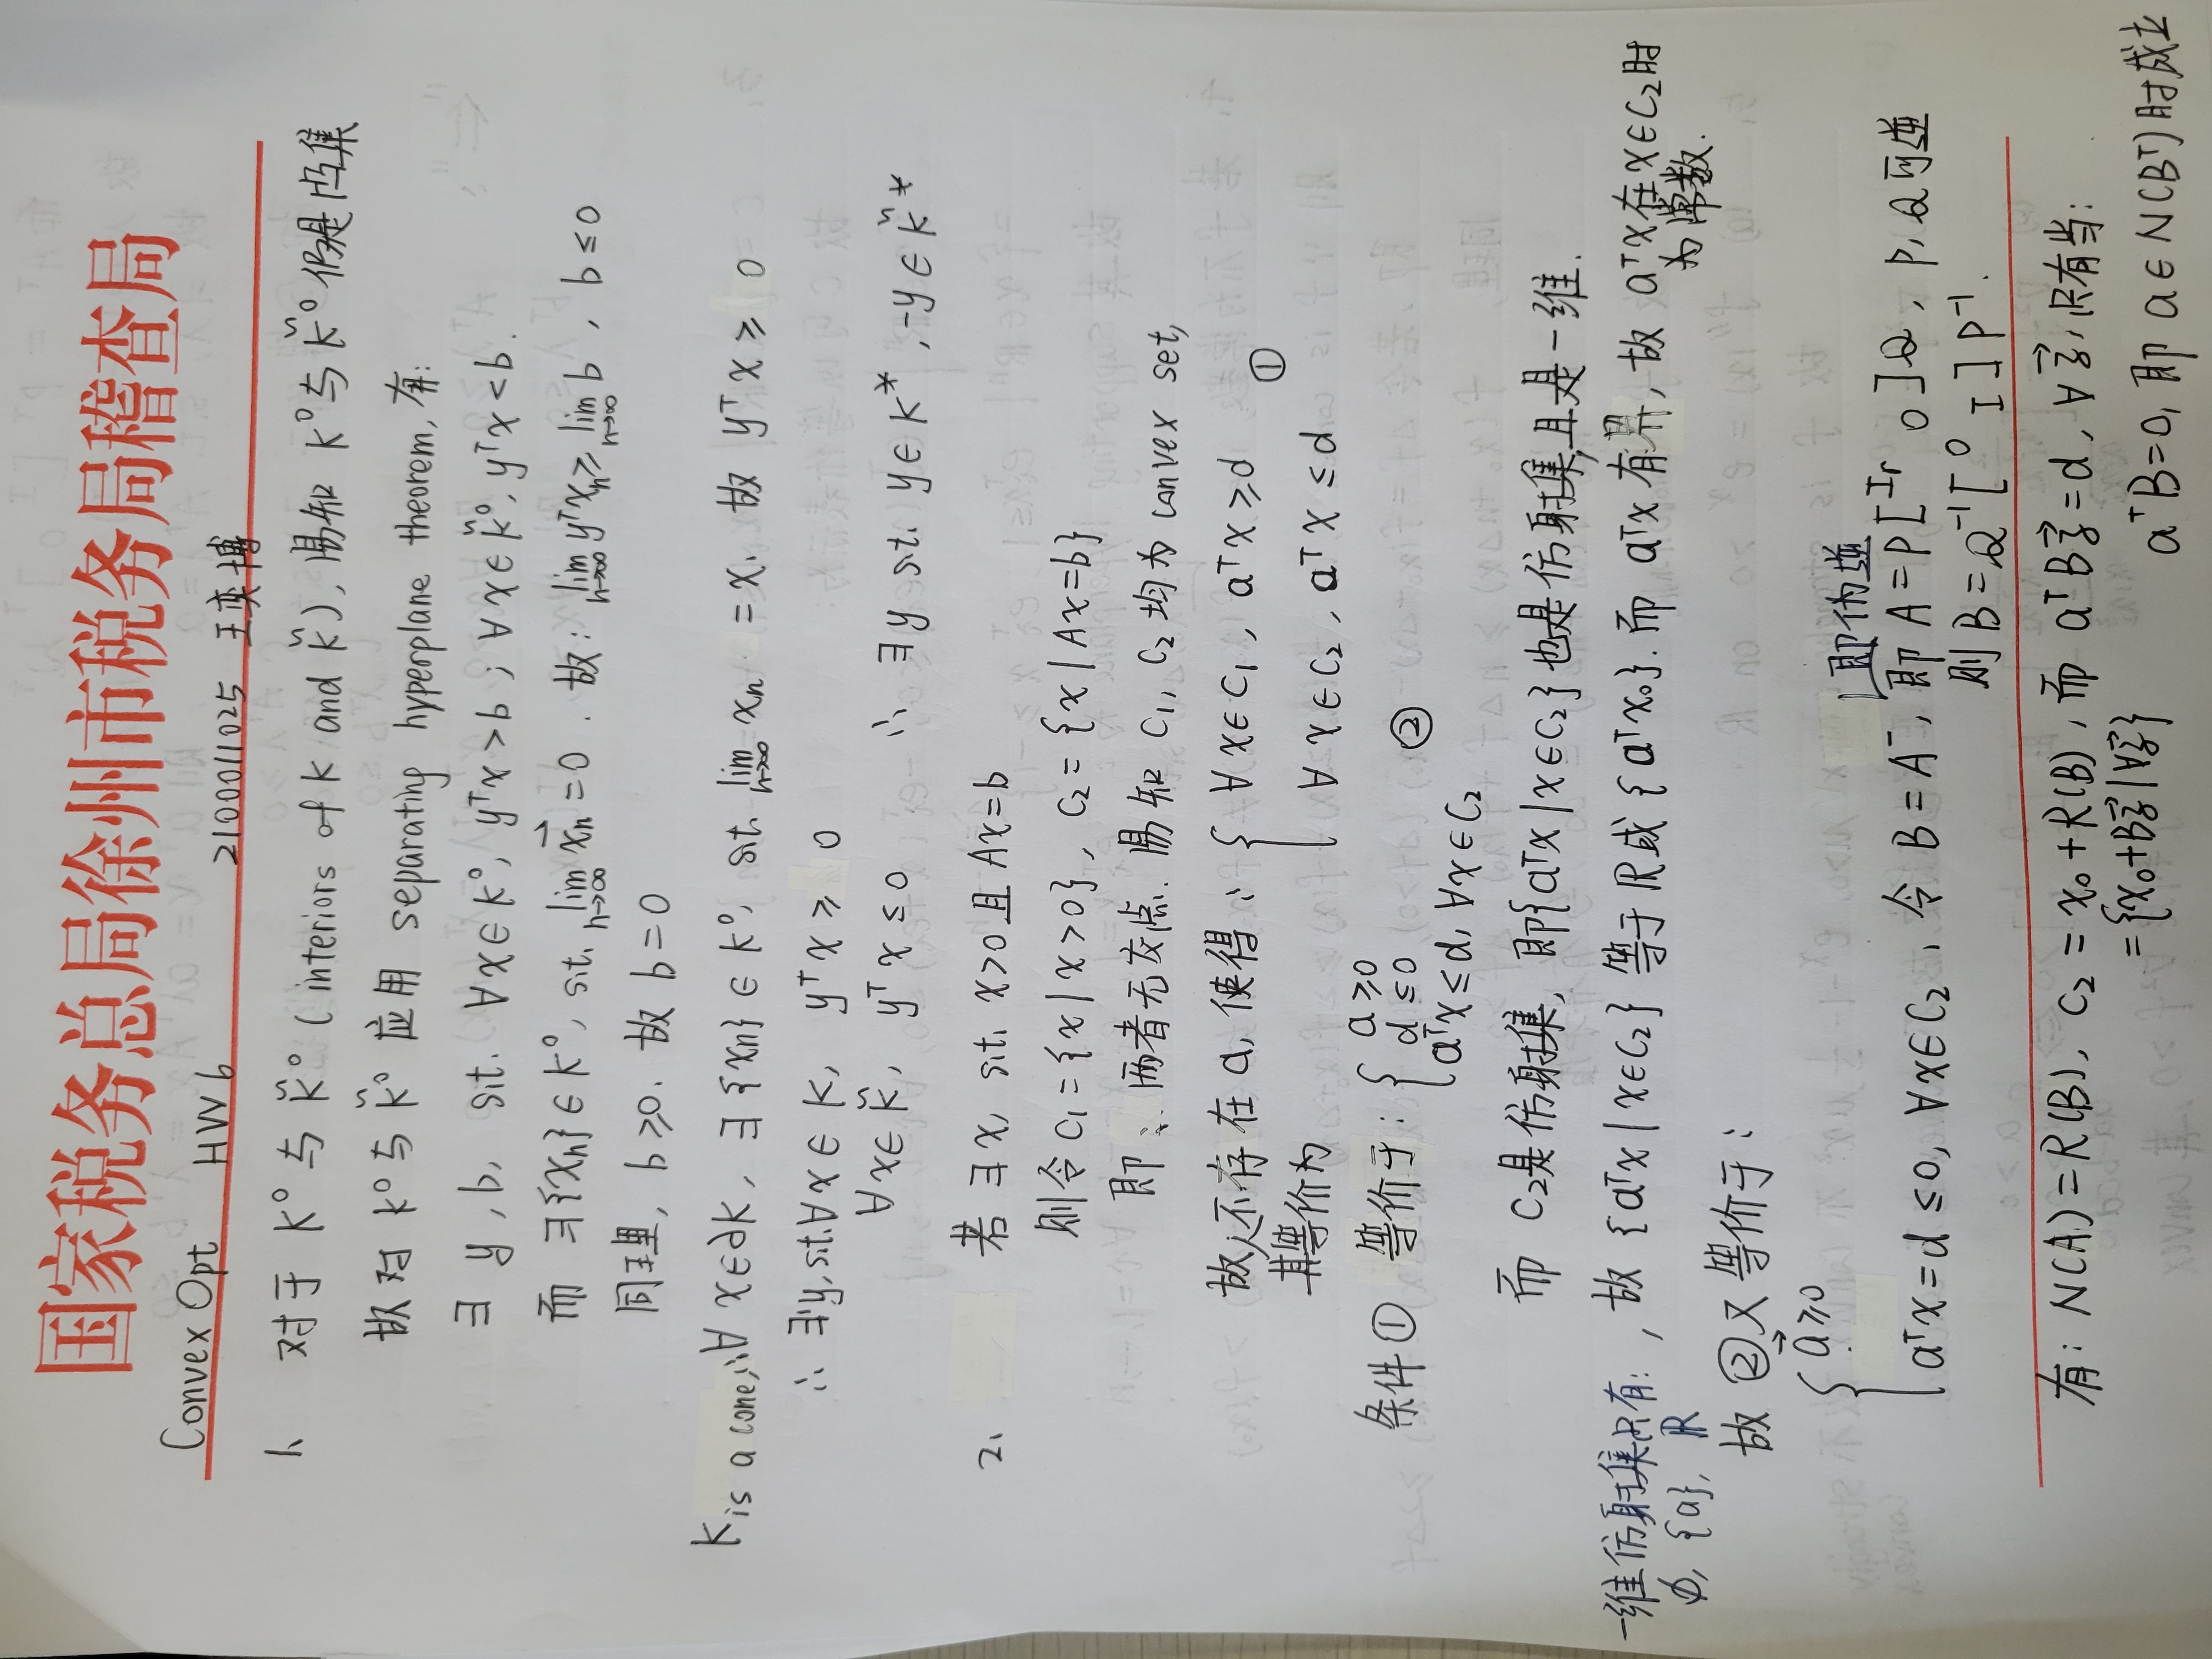 国家税务总局徐州市税务局稽查局
Convex Opt HW6 2100011025 王奕博
1、 对于 K° 与 K̃° (interiors of K and K̃), 易知 K°与K̃° 仍是凸集
故对 K°与K̃° 应用 separating hyperplane theorem, 有:
∃ y, b, s.t. ∀x∈K°, yᵀx>b ; ∀x∈K̃°, yᵀx<b.
而 ∃{xₙ}∈K°, s.t. lim n→∞ xₙ=0. 故: lim n→∞ yᵀxₙ ≥ lim n→∞ b , b≤0
同理, b≥0. 故 b=0
K is a cone, ∴∀ x∈∂K, ∃{xₙ}∈K°, s.t. lim n→∞ xₙ = x. 故 yᵀx ≥ 0
∴ ∃y, s.t. ∀x∈K, yᵀx ≥ 0
∀x∈K̃, yᵀx ≤ 0 ∴ ∃y s.t. y∈K*, -y∈K̃*
2、 若 ∃x, s.t. x>0 且 Ax=b
则令 C₁={x|x>0}, C₂={x|Ax=b}
即: 两者无交点. 易知 C₁, C₂ 均为 convex set,
故不存在 a, 使得: { ∀x∈C₁, aᵀx≥d
其等价为 ①
∀x∈C₂, aᵀx≤d
条件① 等价于: { a≥0
d≤0 ②
aᵀx≤d, ∀x∈C₂
而 C₂是仿射集, 即{aᵀx|x∈C₂}也是仿射集,且是一维.
一维仿射集只有: , 故 {aᵀx|x∈C₂} 等于 ℝ或{aᵀx₀}. 而 aᵀx有界, 故 aᵀx在x∈C₂时
∅, {a}, ℝ 为常数.
故 ②又等价于:
{ a⃗≥0
即伪逆
aᵀx=d≤0, ∀x∈C₂, 令 B=A⁻, 即 A=P[Ir 0]Q, P,Q可逆
则 B=Q⁻¹[0 I]P⁻¹.
有: N(A)=R(B), C₂=x₀+R(B), 而 aᵀBξ⃗=d, ∀ξ⃗, 只有当:
={x₀+Bξ⃗|∀ξ⃗}
aᵀB=0, 即 a∈N(Bᵀ)时成立